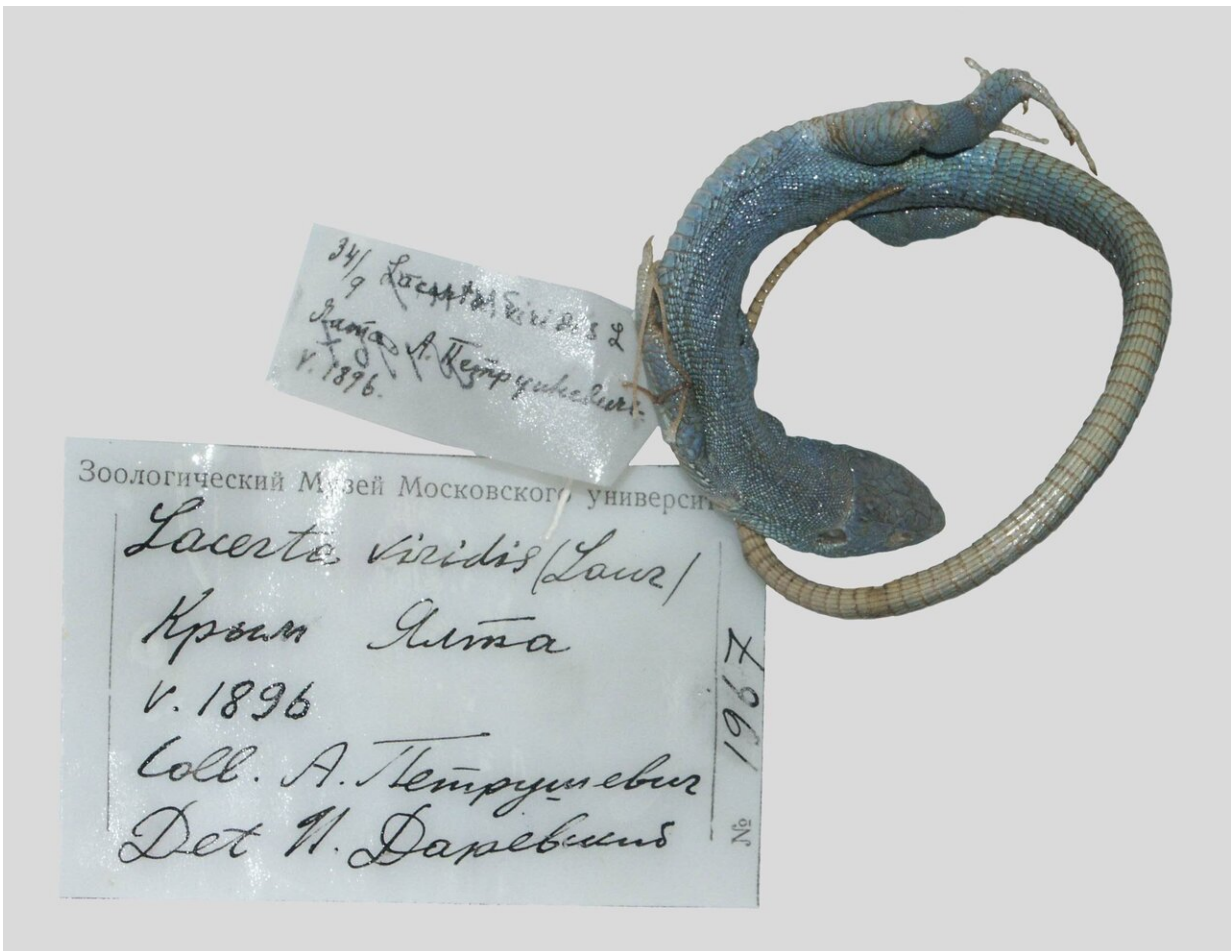 34/9 Lacerta viridis L
Ялта А. Петрункевич.
V. 1896.
Зоологический Музей Московского университ
Lacerta viridis (Laur)
Крым Ялта
V. 1896
Coll. А. Петрушевич
Det И. Даревский
№ 1967